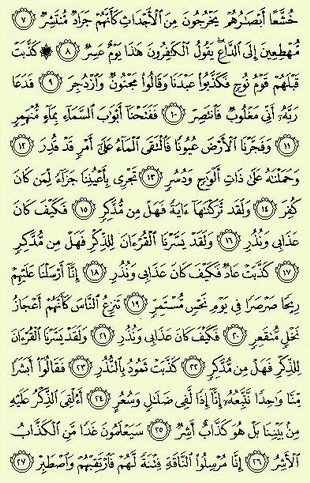 خُشَّعًا أَبْصَٰرُهُمْ يَخْرُجُونَ مِنَ ٱلْأَجْدَاثِ كَأَنَّهُمْ جَرَادٌ مُّنتَشِرٌ ٧
مُّهْطِعِينَ إِلَى ٱلدَّاعِ يَقُولُ ٱلْكَٰفِرُونَ هَٰذَا يَوْمٌ عَسِرٌ ٨ ۞ كَذَّبَتْ
قَبْلَهُمْ قَوْمُ نُوحٍ فَكَذَّبُوا۟ عَبْدَنَا وَقَالُوا۟ مَجْنُونٌ وَٱزْدُجِرَ ٩ فَدَعَا
رَبَّهُۥٓ أَنِّى مَغْلُوبٌ فَٱنتَصِرْ ١٠ فَفَتَحْنَآ أَبْوَٰبَ ٱلسَّمَآءِ بِمَآءٍ مُّنْهَمِرٍ
١١ وَفَجَّرْنَا ٱلْأَرْضَ عُيُونًا فَٱلْتَقَى ٱلْمَآءُ عَلَىٰٓ أَمْرٍ قَدْ قُدِرَ ١٢
وَحَمَلْنَٰهُ عَلَىٰ ذَاتِ أَلْوَٰحٍ وَدُسُرٍ ١٣ تَجْرِى بِأَعْيُنِنَا جَزَآءً لِّمَن كَانَ
كُفِرَ ١٤ وَلَقَد تَّرَكْنَٰهَآ ءَايَةً فَهَلْ مِن مُّدَّكِرٍ ١٥ فَكَيْفَ كَانَ
عَذَابِى وَنُذُرِ ١٦ وَلَقَدْ يَسَّرْنَا ٱلْقُرْءَانَ لِلذِّكْرِ فَهَلْ مِن مُّدَّكِرٍ
١٧ كَذَّبَتْ عَادٌ فَكَيْفَ كَانَ عَذَابِى وَنُذُرِ ١٨ إِنَّآ أَرْسَلْنَا عَلَيْهِمْ
رِيحًا صَرْصَرًا فِى يَوْمِ نَحْسٍ مُّسْتَمِرٍّ ١٩ تَنزِعُ ٱلنَّاسَ كَأَنَّهُمْ أَعْجَازُ
نَخْلٍ مُّنقَعِرٍ ٢٠ فَكَيْفَ كَانَ عَذَابِى وَنُذُرِ ٢١ وَلَقَدْ يَسَّرْنَا ٱلْقُرْءَانَ
لِلذِّكْرِ فَهَلْ مِن مُّدَّكِرٍ ٢٢ كَذَّبَتْ ثَمُودُ بِٱلنُّذُرِ ٢٣ فَقَالُوٓا۟ أَبَشَرًا
مِّنَّا وَٰحِدًا نَّتَّبِعُهُۥٓ إِنَّآ إِذًا لَّفِى ضَلَٰلٍ وَسُعُرٍ ٢٤ أَءُلْقِىَ ٱلذِّكْرُ عَلَيْهِ
مِنۢ بَيْنِنَا بَلْ هُوَ كَذَّابٌ أَشِرٌ ٢٥ سَيَعْلَمُونَ غَدًا مَّنِ ٱلْكَذَّابُ
ٱلْأَشِرُ ٢٦ إِنَّا مُرْسِلُوا۟ ٱلنَّاقَةِ فِتْنَةً لَّهُمْ فَٱرْتَقِبْهُمْ وَٱصْطَبِرْ ٢٧